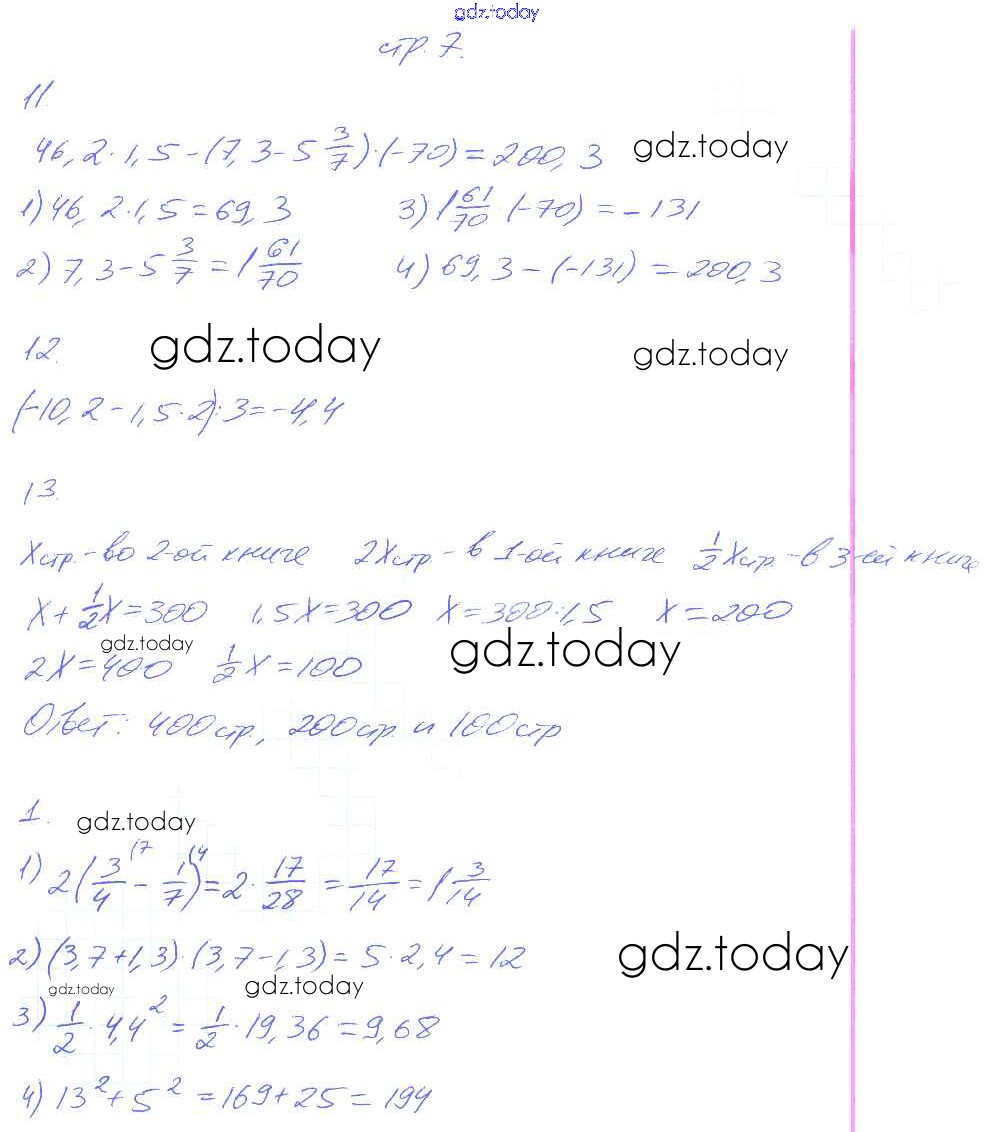 gdz.today
стр. 7.
11.
46,2·1,5-(7,3-5 3/7)·(-70)=200,3 gdz.today
1) 46,2·1,5=69,3 3) 1 61/70·(-70)=-131
2) 7,3-5 3/7=1 61/70 4) 69,3-(-131)=200,3
12. gdz.today gdz.today
(-10,2-1,5·2):3=-4,4
13.
X стр.-во 2-ой книге 2X стр.-в 1-ой книге 1/2 X стр.-в 3-ей книге
X+1/2X=300 1,5X=300 X=300:1,5 X=200
gdz.today gdz.today
2X=400 1/2X=100
Ответ: 400 стр., 200 стр. и 100 стр
1. gdz.today
1) 2(3/4 (7 - 1/7 (4)=2·17/28=17/14=1 3/14
2) (3,7+1,3)·(3,7-1,3)=5·2,4=12 gdz.today
gdz.today gdz.today
3) 1/2·4,4²=1/2·19,36=9,68
4) 13²+5²=169+25=194